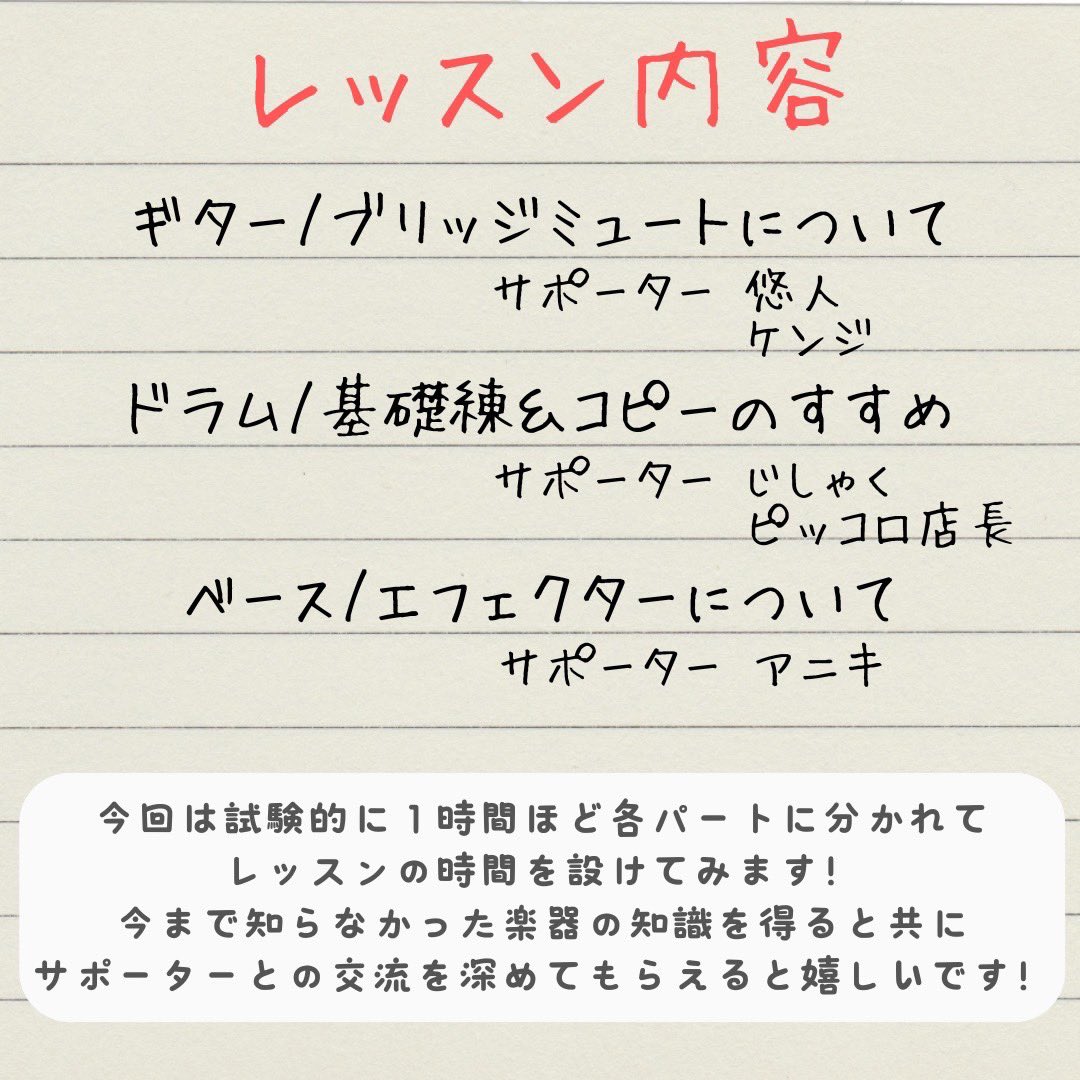 レッスン内容
ギター/ブリッジミュートについて
サポーター 悠人
ケンジ
ドラム/基礎練&コピーのすすめ
サポーター じしゃく
ピッコロ店長
ベース/エフェクターについて
サポーター アニキ
今回は試験的に1時間ほど各パートに分かれて
レッスンの時間を設けてみます!
今まで知らなかった楽器の知識を得ると共に
サポーターとの交流を深めてもらえると嬉しいです!